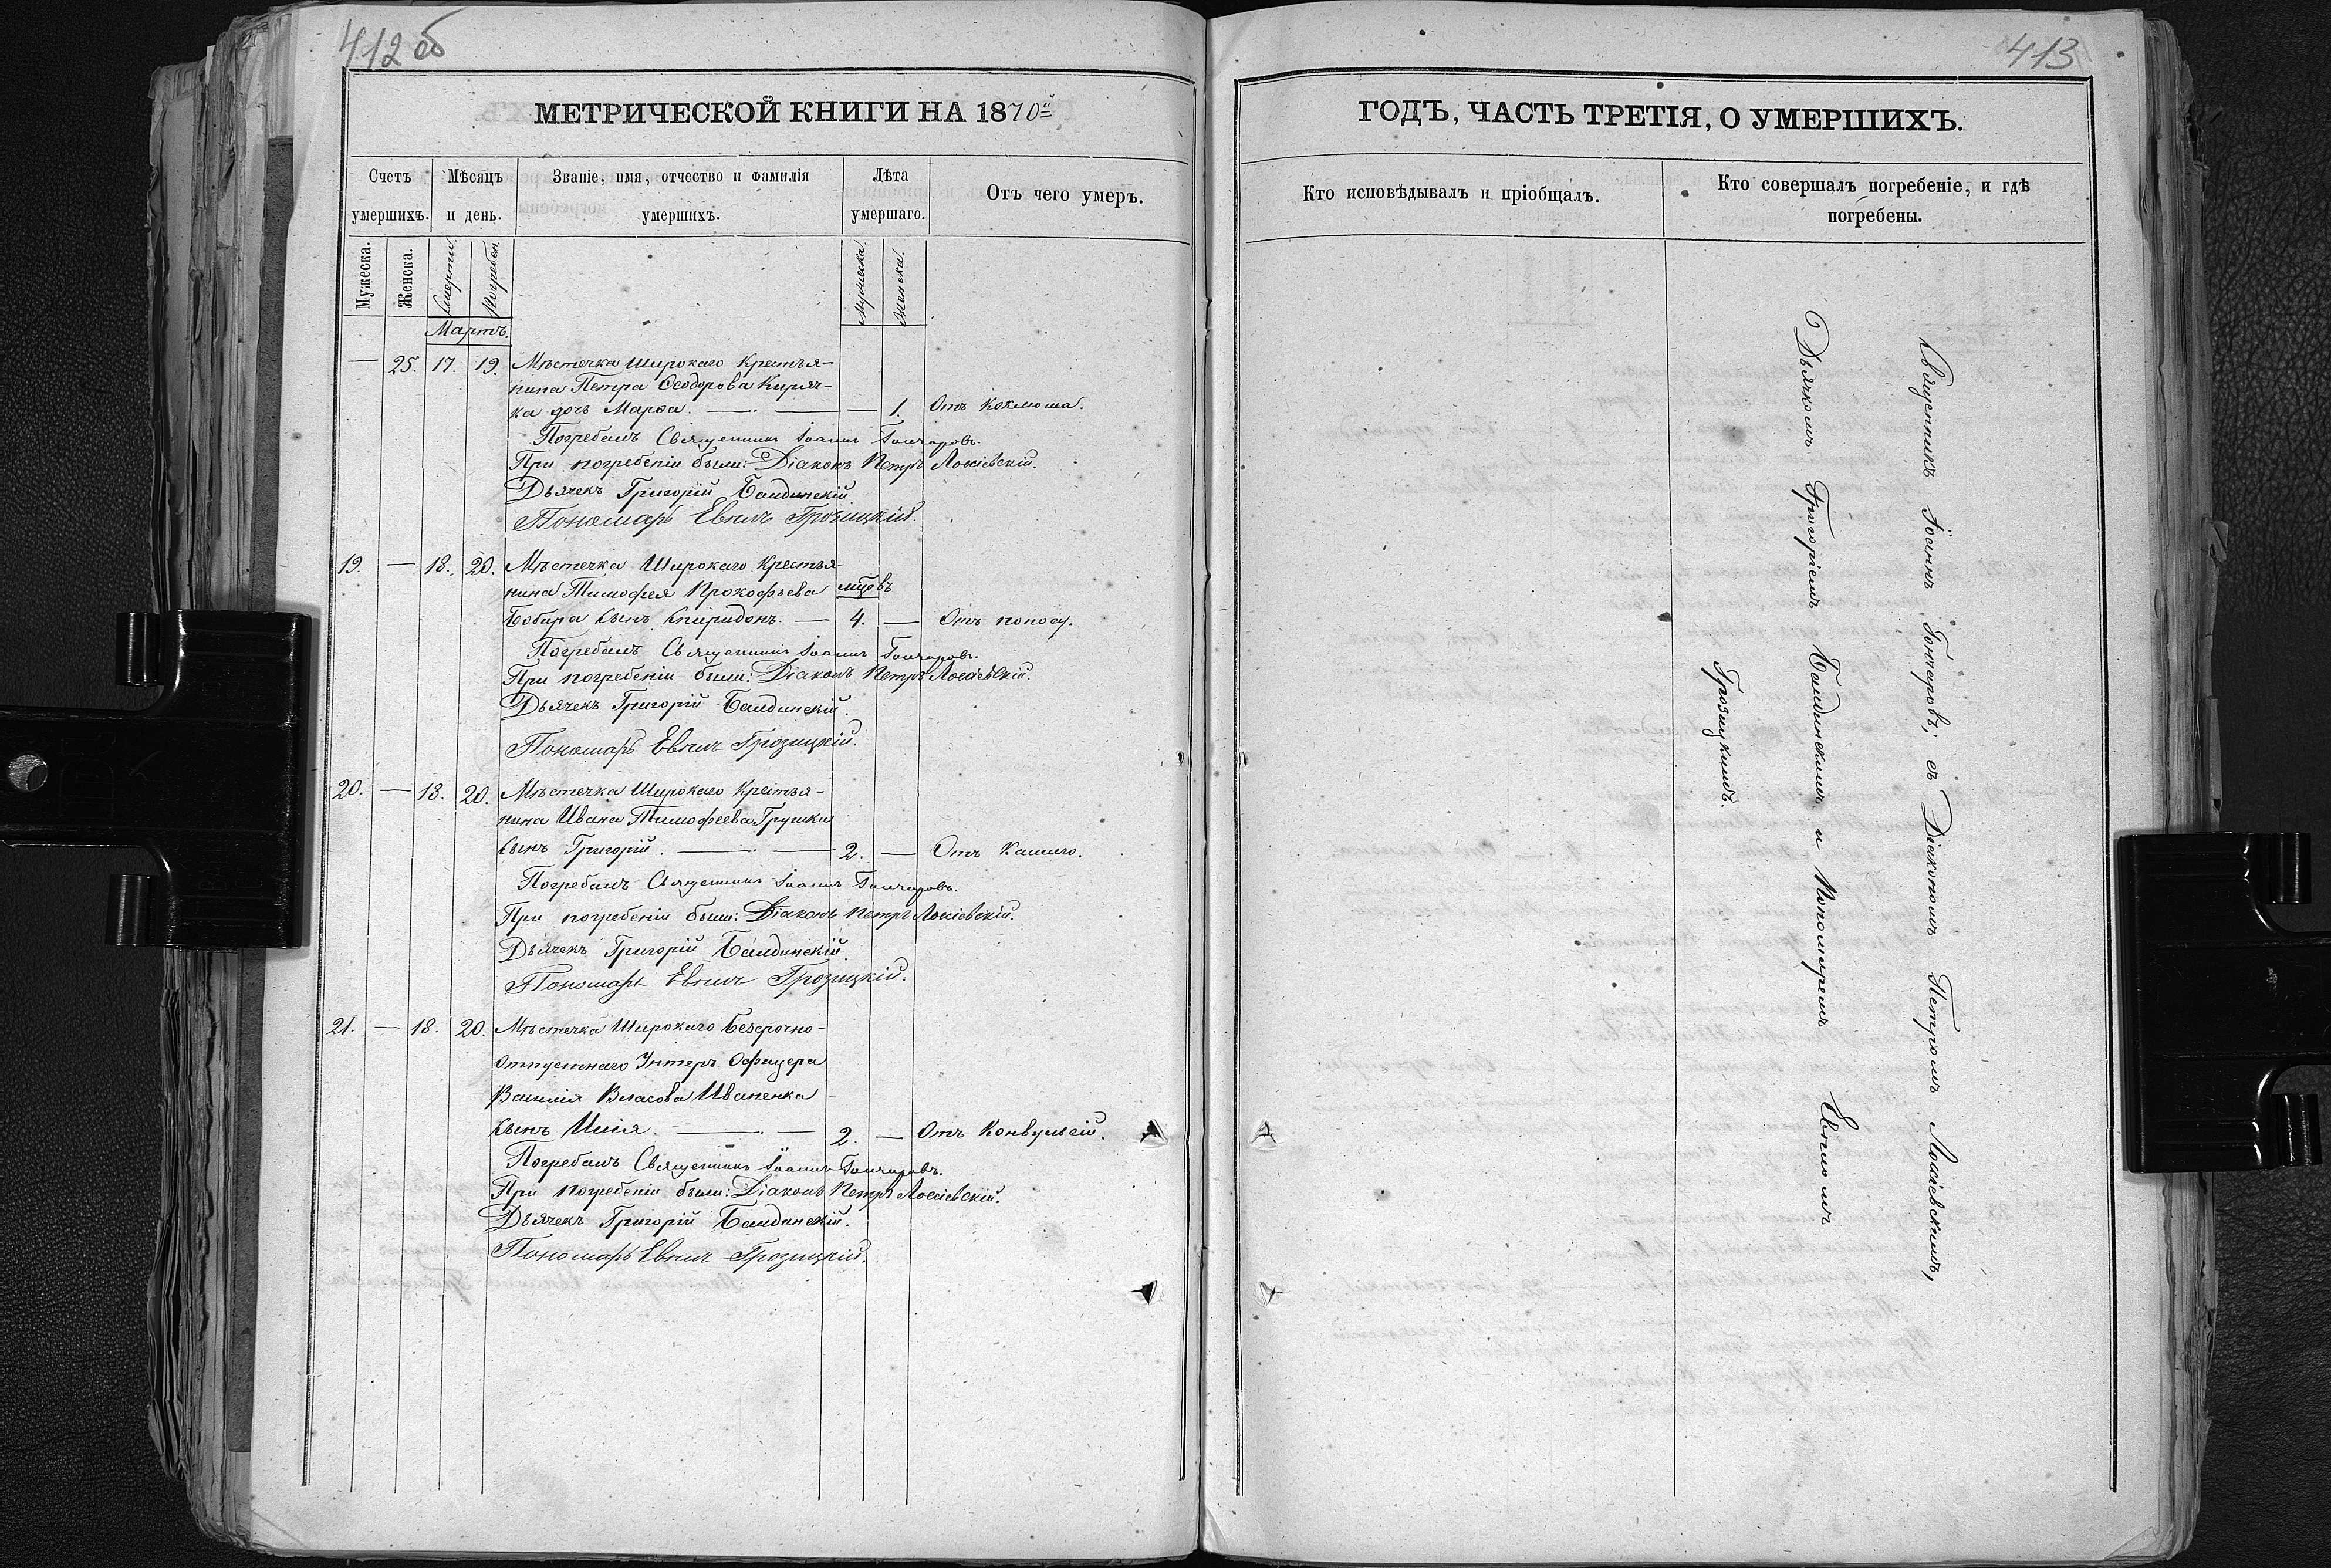 412 об
МЕТРИЧЕСКОЙ КНИГИ НА 1870й
Счетъ умершихъ.
Мѣсяцъ и день.
Званіе, имя, отчество и фамилія умершихъ.
Лѣта умершаго.
Отъ чего умеръ.
Мужеска.
Женска.
Смерти
Погребен.
Мужеска.
Женска.
Мартъ.
— 25. 17. 19. Мѣстечка Широкаго Крестья-
нина Петра Ѳеодорова Кирич-
ка дочь Марѳа. — — 1. Отъ Коклюша.
Погребалъ Священникъ Іоаннъ Гончаровъ.
При погребеніи были: Діаконъ Петръ
Дьячекъ Григорій
Пономарь Евѳим Грозицкій.
19. — 18. 20. Мѣстечка Широкаго Крестья-
нина Тимофея Прокофьева мцовъ
Бобыра сынъ Спиридонъ. — 4. — Отъ поносу.
Погребалъ Священникъ Іоаннъ Гончаровъ.
При погребеніи были: Діаконъ Петръ
Дьячекъ Григорій
Пономарь Евѳим Грозицкій.
20. — 18. 20. Мѣстечка Широкаго Крестья-
нина Ивана Тимофеева Грушки
сынъ Григорій. — — 2. — Отъ Кашлю.
Погребалъ Священникъ Іоаннъ Гончаровъ.
При погребеніи были: Діаконъ Петръ
Дьячекъ Григорій
Пономарь Евѳим Грозицкій.
21. — 18. 20. Мѣстечка Широкаго Безсрочно-
отпустнаго Унтеръ Офицера
Василія Власова Иваненка
сынъ Илія. — — 2. — Отъ Конвульсій.
Погребалъ Священникъ Іоаннъ Гончаровъ.
При погребеніи были: Діаконъ Петръ
Дьячекъ Григорій
Пономарь Евѳим Грозицкій.
413
ГОДЪ, ЧАСТЬ ТРЕТІЯ, О УМЕРШИХЪ.
Кто исповѣдывалъ и пріобщалъ.
Кто совершалъ погребеніе, и гдѣ
погребены.
Священникъ Іоаннъ Гончаровъ; съ Діакономъ Петромъ
Дьячкомъ Григоріемъ и Пономаремъ Евѳимомъ
Грозицкимъ.